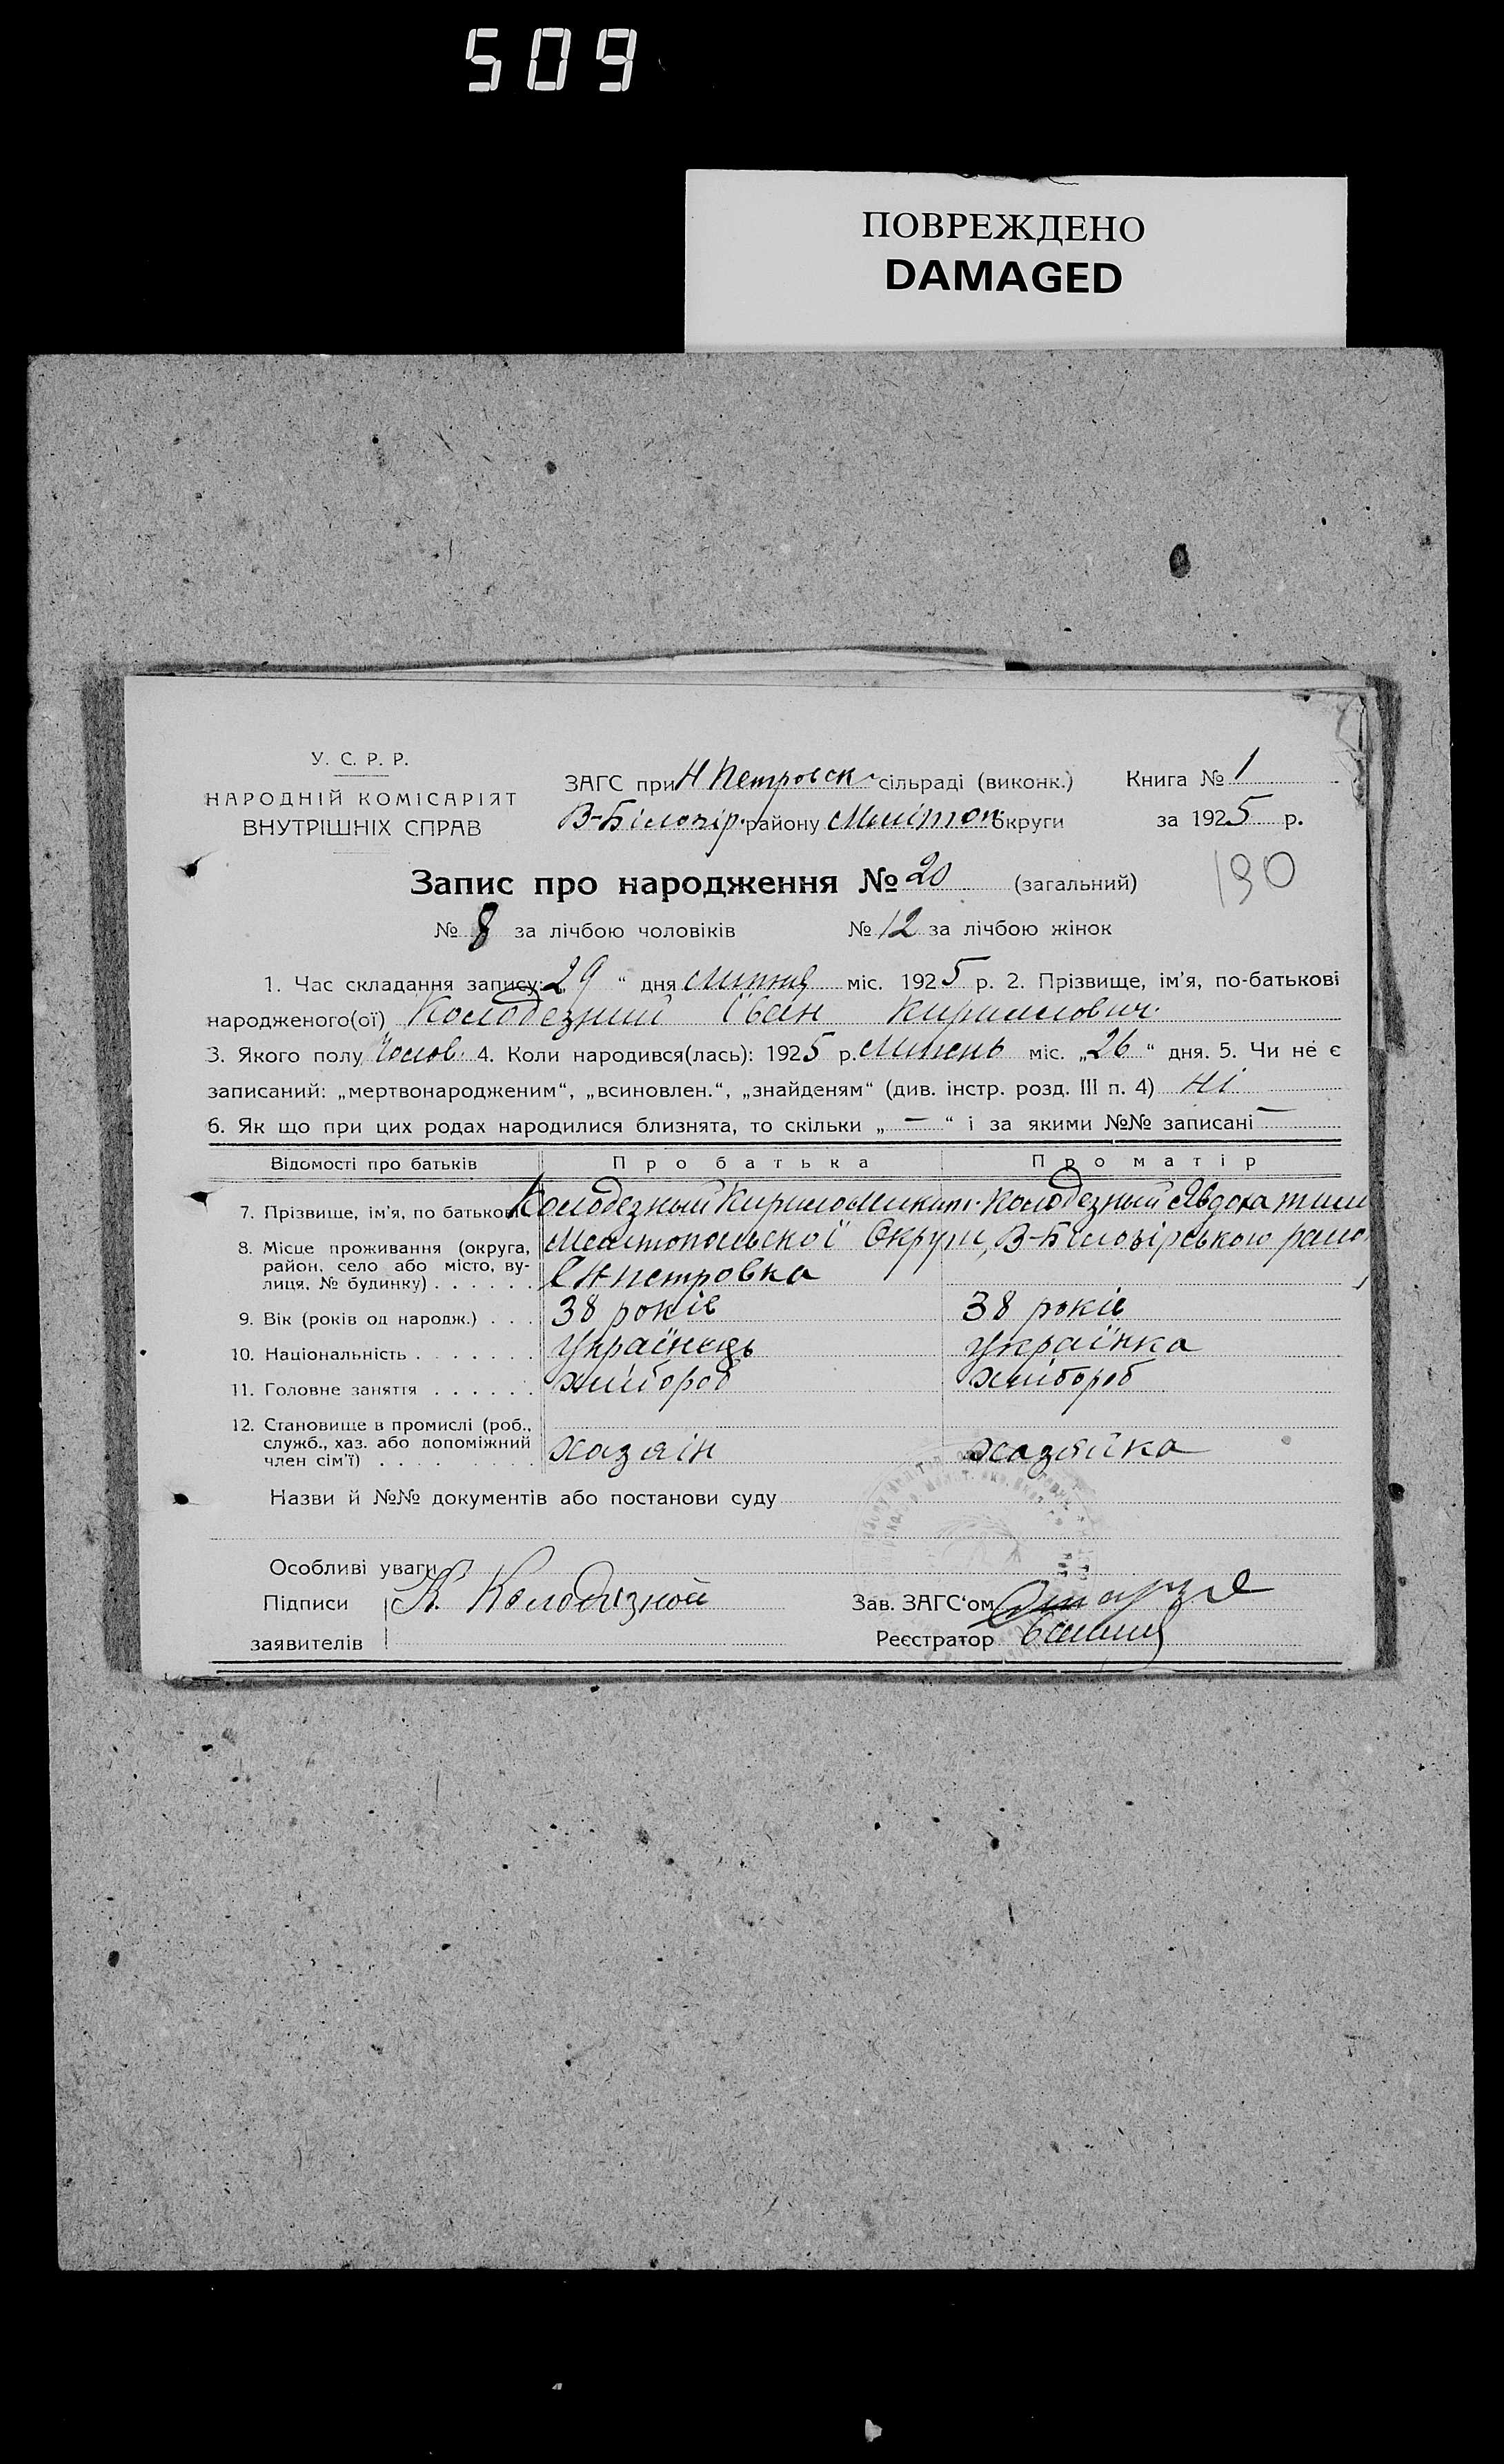 509
ПОВРЕЖДЕНО
DAMAGED
У. С. Р. Р.
НАРОДНІЙ КОМІСАРІЯТ
ВНУТРІШНІХ СПРАВ
ЗАГС при Н Петровск сільраді (виконк.) Книга № 1
В-Білозір. району Мелітоп округи за 1925 р.
190
Запис про народження № 20 (загальний)
№ 8 за лічбою чоловіків № 12 за лічбою жінок
1. Час складання запису: 29 “ дня липня міс. 1925 р. 2. Прізвище, ім’я, по-батькові
народженого(ої) Колодезний Іван Кирилович.
3. Якого полу Чолов. 4. Коли народився(лась): 1925 р. Липень міс. „26“ дня. 5. Чи не є
записаний: „мертвонародженим“, „всиновлен.“, „знайденям“ (див. інстр. розд. III п. 4) Ні
6. Як що при цих родах народилися близнята, то скільки „ — “ і за якими №№ записані —
Відомості про батьків Про батька Про матір
7. Прізвище, ім’я, по батькові Колодезный Кирило Микит. Колодезный Явдока Тим
8. Місце проживання (округа, Мелітопольскої Округи, В-Білозірського
район, село або місто, ву-
лиця, № будинку) . . . . . . с Н Петровка
9. Вік (років од народж.) . . . 38 років 38 років
10. Національність . . . . . . . Українець Українка
11. Головне заняття . . . . . . хлібороб хлібороб
12. Становище в промислі (роб.,
служб., хаз. або допоміжний
член сім’ї) . . . . . . . . хазяін хазяйка
Назви й №№ документів або постанови суду
Особливі уваги
Підписи К. Колодязной Зав. ЗАГС‘ом
заявителів Реєстратор